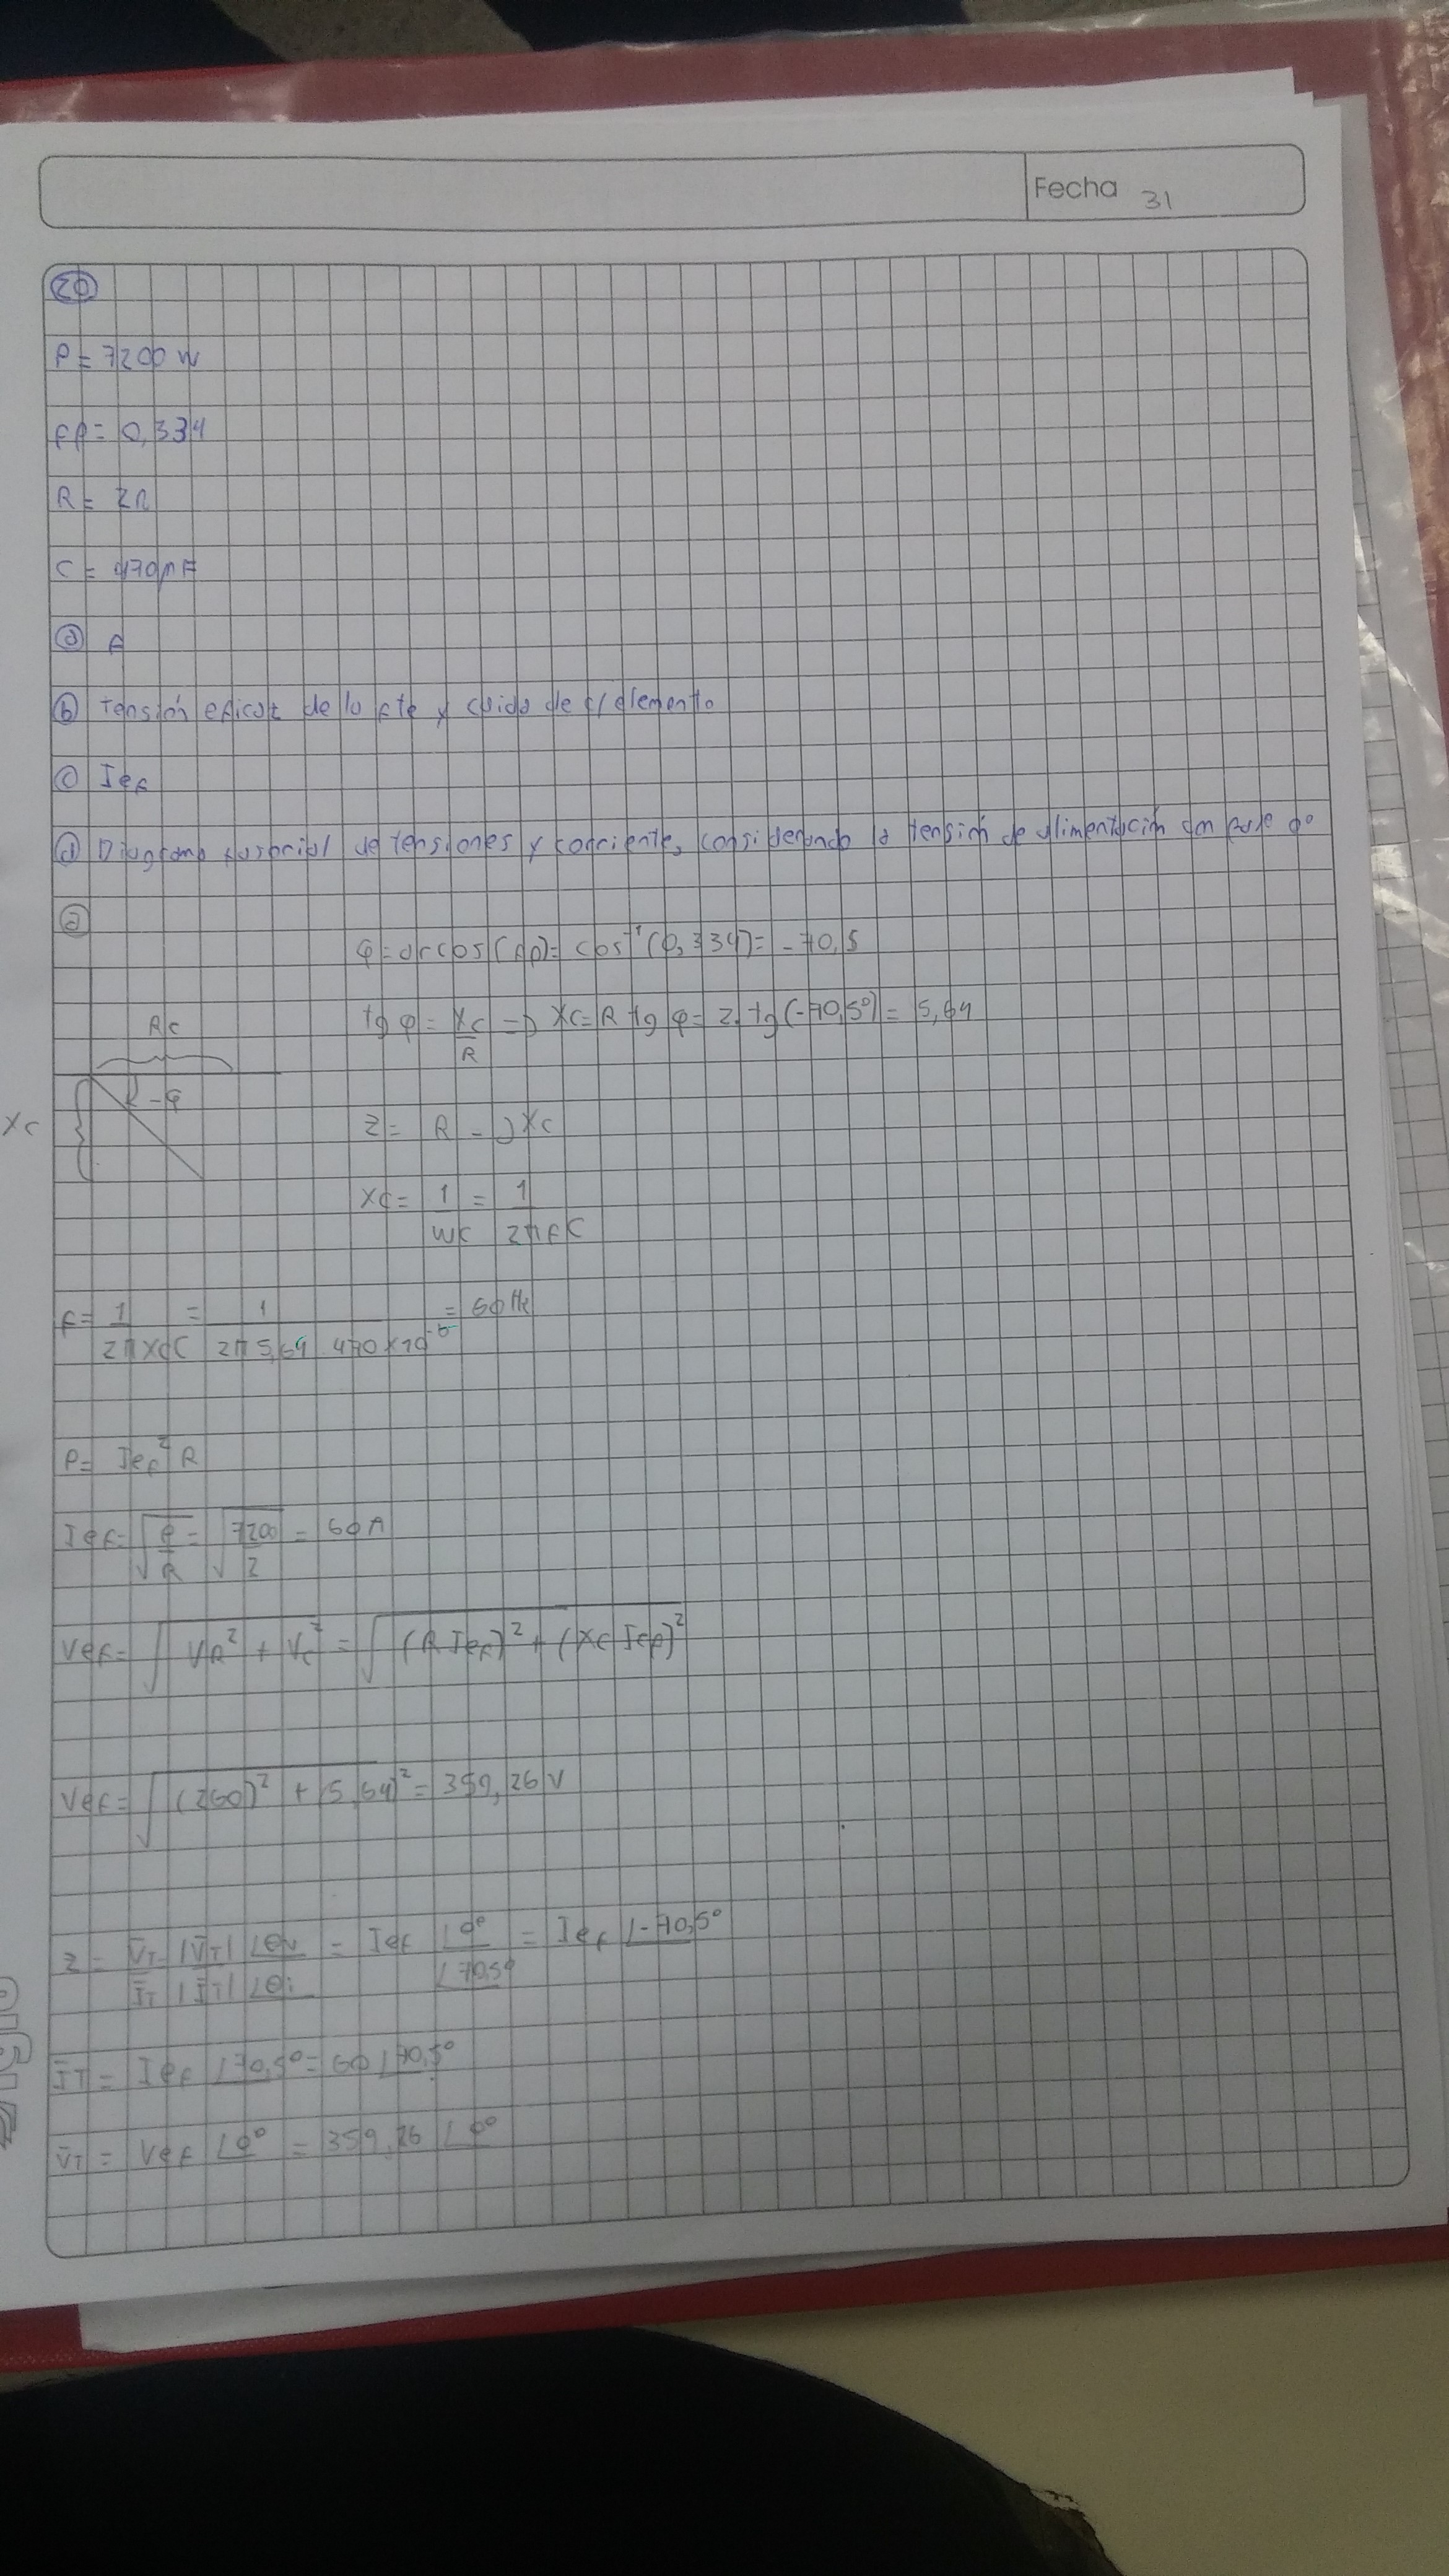 Fecha 31
20
P = 7200 W
fp = 0,334
R = 2Ω
C = 470μF
a) f
b) Tensión eficaz de la fte y caida de c/elemento
c) Ief
d) Diagrama fasorial de tensiones y corriente, considerando la tensión de alimentación con fase 0°
a)
φ = arcos (fp) = cos⁻¹ (0,334) = -70,5
tg φ = Xc/R → Xc = R tg φ = 2 tg (-70,5°) = 5,64
RC
-φ
Xc
Z = R - JXc
Xc = 1/WC = 1/2πfC
f = 1/2πXcC = 1/2π 5,64 470x10⁻⁶ = 60 Hz
P = Ief² R
Ief = √P/R = √7200/2 = 60 A
Vef = √VR² + Vc² = √(R Ief)² + (Xc Ief)²
Vef = √(260)² + (5,64)² = 359,26 V
Z = V̄T/ĪT = |V̄T| ∠θv/|ĪT| ∠θi = Ief ∠0°/∠70,5° = Ief ∠-70,5°
ĪT = Ief ∠70,5° = 60 ∠70,5°
V̄T = Vef ∠0° = 359,26 ∠0°